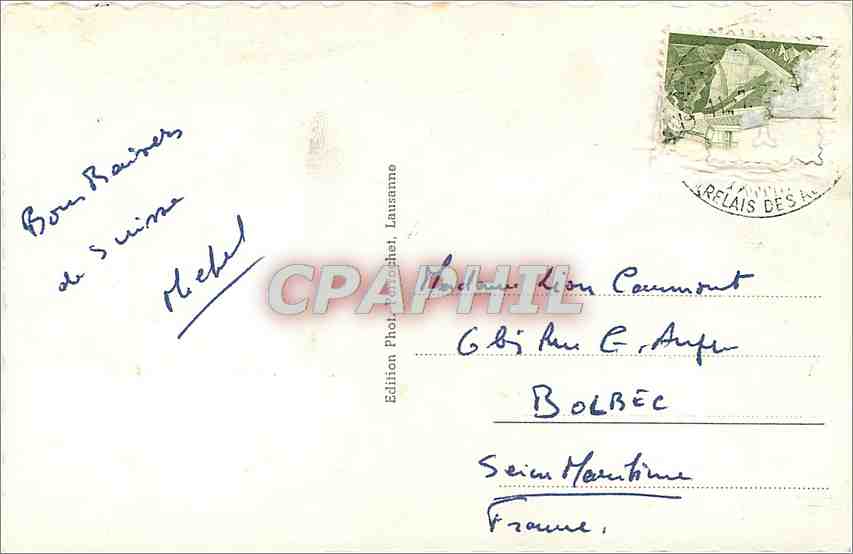 Bons Baisers
de Suisse
Michel
Edition Phot. Perrochet, Lausanne
CPAPHIL
RELAIS DES
Madame Léon Caumont
6 bis Rue
BOLBEC
Seine Maritime
France.